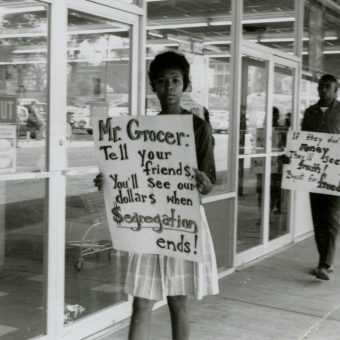 Mr. Grocer:
Tell your
friends,
You'll See our
dollars when
$egregation
ends!
If they do
money
They'll see
Bound for
UT